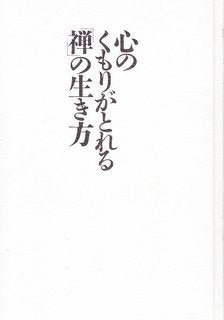 心の
くもりがとれる
「禅」の生き方